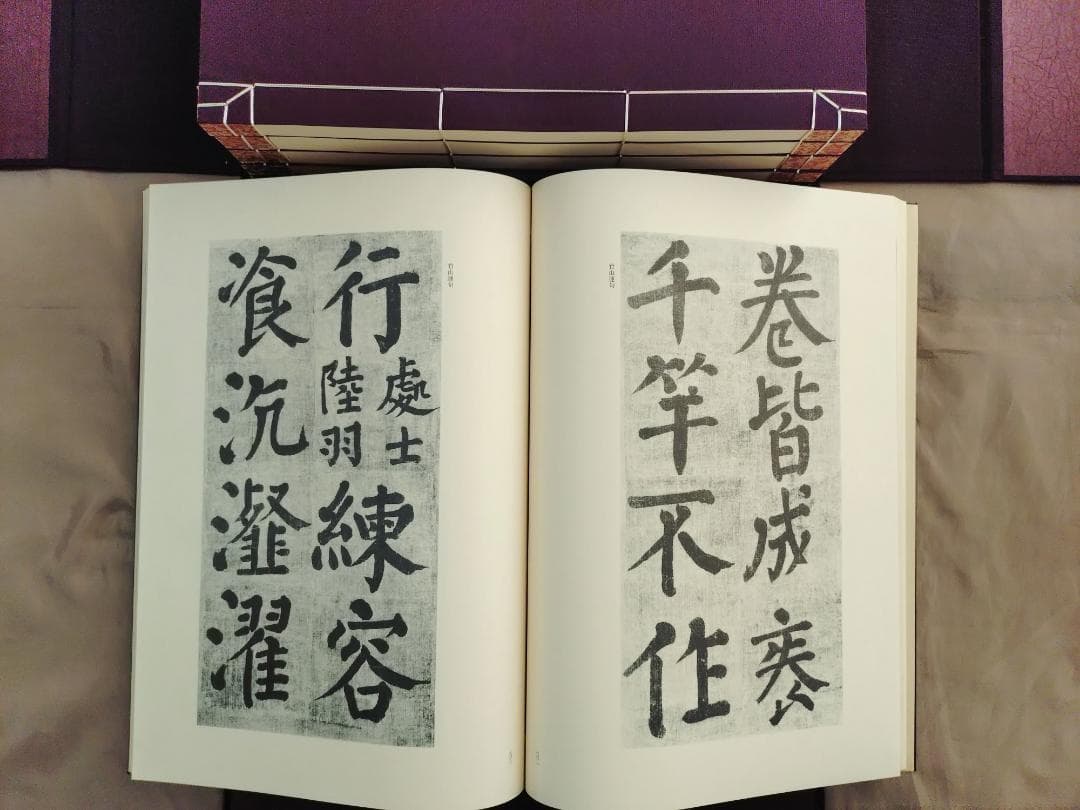 卷皆成袠
千竿不作
竹山連句
竹山連句
行
處士
陸羽
練容
飡沆瀣濯